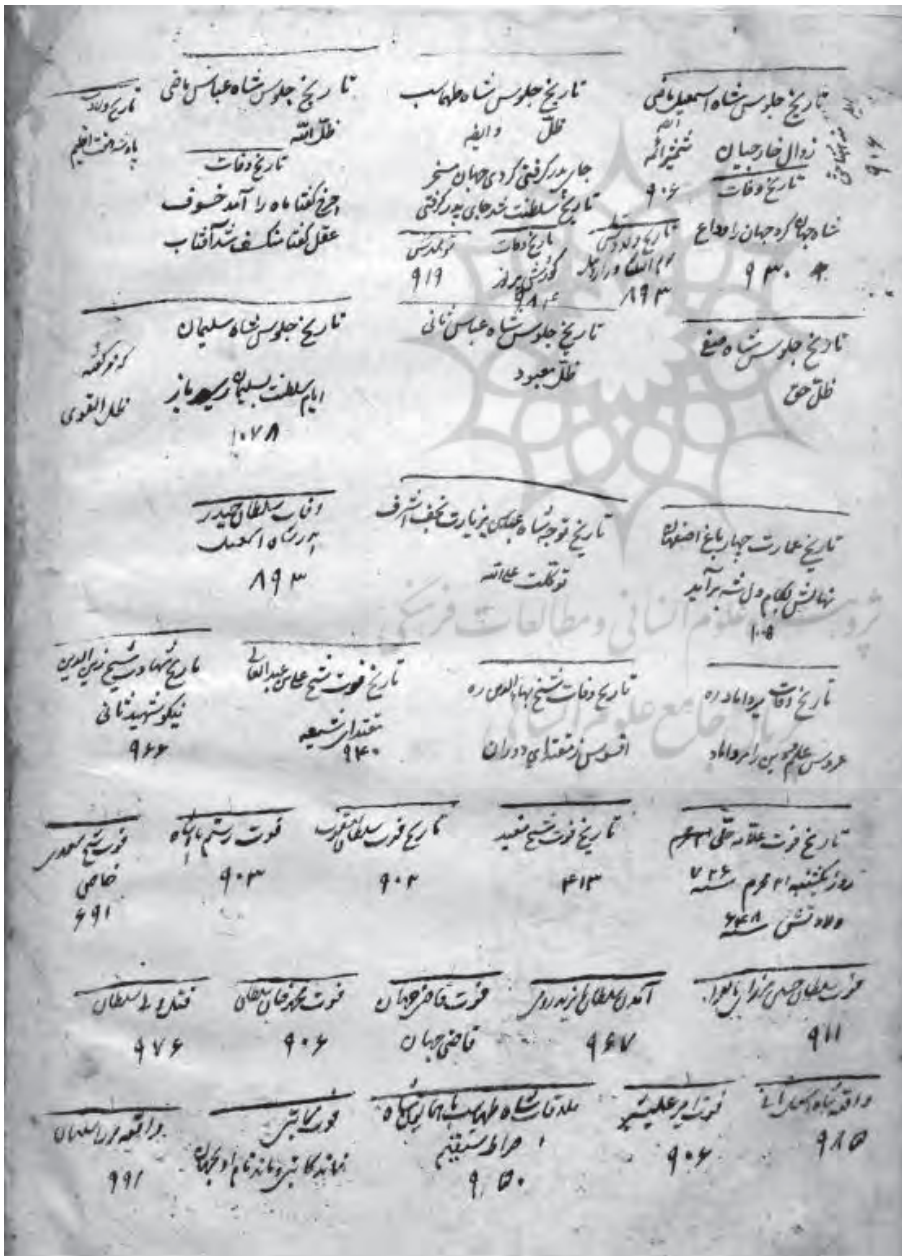 تاریخ جلوس شاه اسمعیل ماضی
زوال خارجیان
شمشیر ائمه
۹۰۶
تاریخ وفات
شاه جهان کرد جهان را وداع
۹۳۰
۸۹۳
تاریخ جلوس شاه طهماسب
ظل
جای پدر گرفتی کردی جهان مسخر
تاریخ سلطنت شد جای پدر گرفتی
تاریخ وفات
۹۸۴
تولدش
۹۱۹
تاریخ جلوس شاه عباس ماضی
ظل الله
تاریخ وفات
چرخ گفتا ماه را آمد خسوف
عقل گفتا منکسف شد آفتاب
تاریخ ولادت
پادشاه هفت اقلیم
تاریخ جلوس شاه صفی
ظل حق
تاریخ جلوس شاه عباس ثانی
ظل معبود
تاریخ جلوس شاه سلیمان
ایام سلطنت بسلیمان رسید باز
۱۰۷۸
ظل القوی
تاریخ عمارت چهار باغ اصفهان
نهالش بکام دل شه برآید
تاریخ توجه شاه عباس بزیارت نجف اشرف
توکلت علی الله
وفات سلطان حیدر
پدر شاه اسمعیل
۸۹۳
تاریخ وفات میرداماد ره
عروس علم و دین را مرده داماد
تاریخ وفات شیخ بهاءالدین ره
افسوس ز مقتدای دوران
تاریخ فوت شیخ علی بن عبدالعالی
مقتدای شیعه
۹۴۰
تاریخ شهادت شیخ زین الدین
نیکو شهید ثانی
۹۶۶
تاریخ فوت علامه حلی
روز یکشنبه ۲۱ محرم سنه ۷۲۶
ولادتش سنه ۶۴۸
تاریخ فوت شیخ مفید
۴۱۳
تاریخ فوت سلطان یعقوب
۹۰۲
فوت رستم پادشاه
۹۰۳
فوت شیخ سعدی
خاص
۶۹۱
فوت سلطان حسین میرزا بایقرا
۹۱۱
آمدن سلطان بایزید رومی
۹۶۷
فوت قاضی جهان
قاضی جهان
فوت محمد خان سلطان
۹۰۶
سلطان
۹۷۶
واقعه شاه اسمعیل ثانی
۹۸۵
فوت امیر علیشیر
۹۰۶
ملاقات شاه طهماسب با همایون پادشاه
صراط مستقیم
۹۵۰
فوت کاتبی
واقعه میرزا سلمان
۹۹۱
پژوهشگاه علوم انسانی و مطالعات فرهنگی
پرتال جامع علوم انسانی